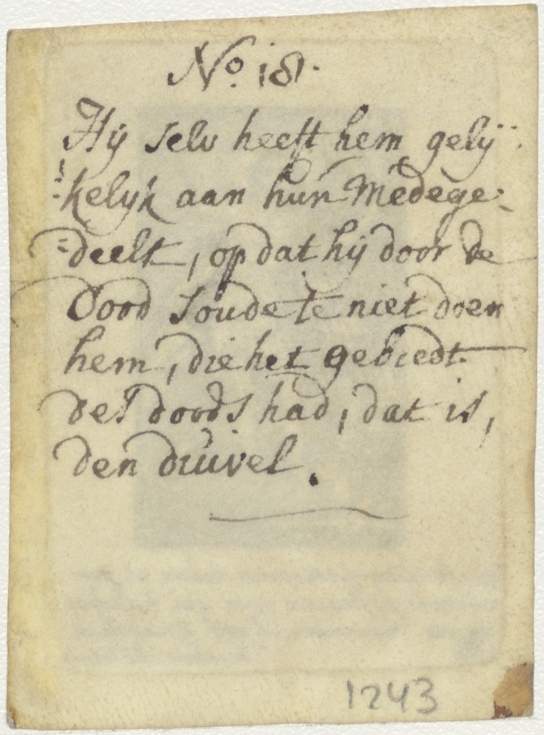 No. 181.
Hij selv heeft hem gelij:
:kelyk aan hun Medege:
:deelt, op dat hij door de
Dood soude te niet doen
hem, die het gebiedt
des doods had, dat is,
den duivel.
1243